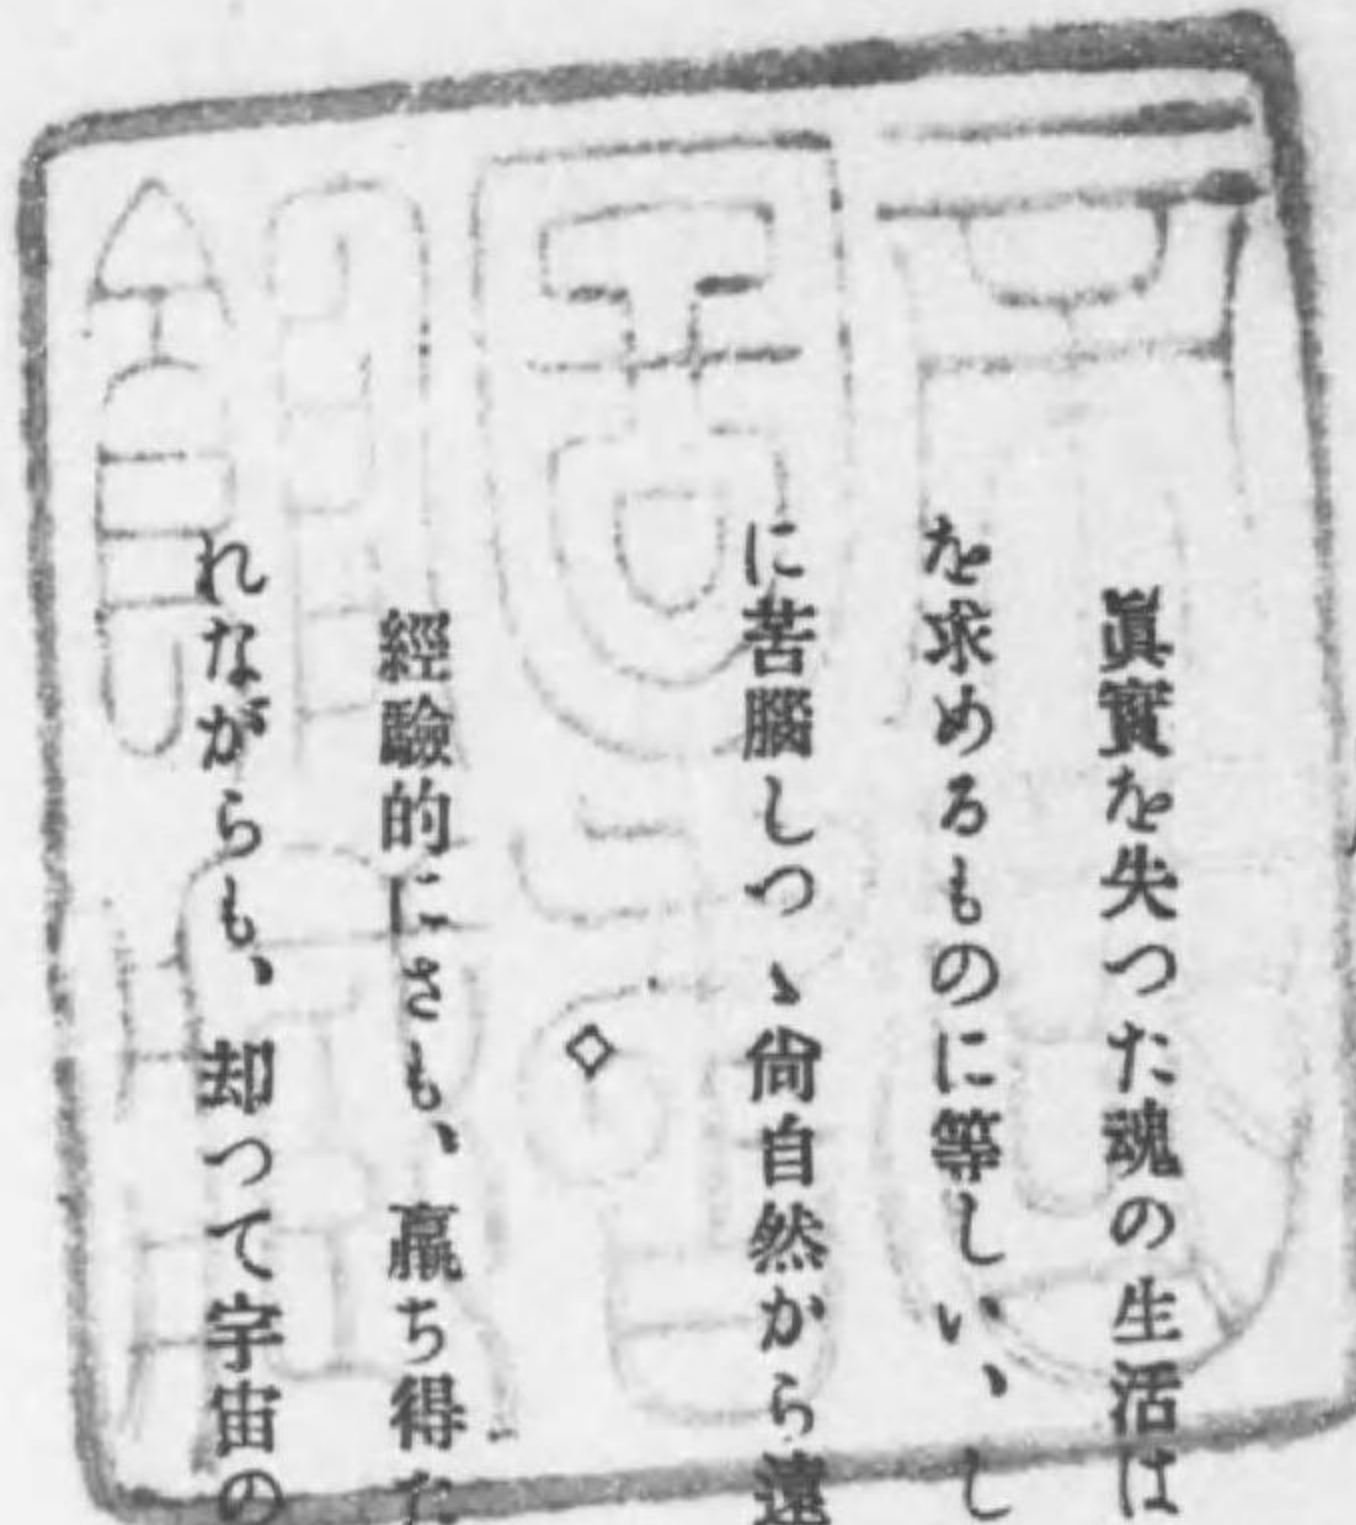 眞實を失つた魂の生活は
を求めるものに等しい、し
に苦腦しつゝ尙自然から遠
◇
經驗的にさも、贏ち得た
れながらも、却つて宇宙の